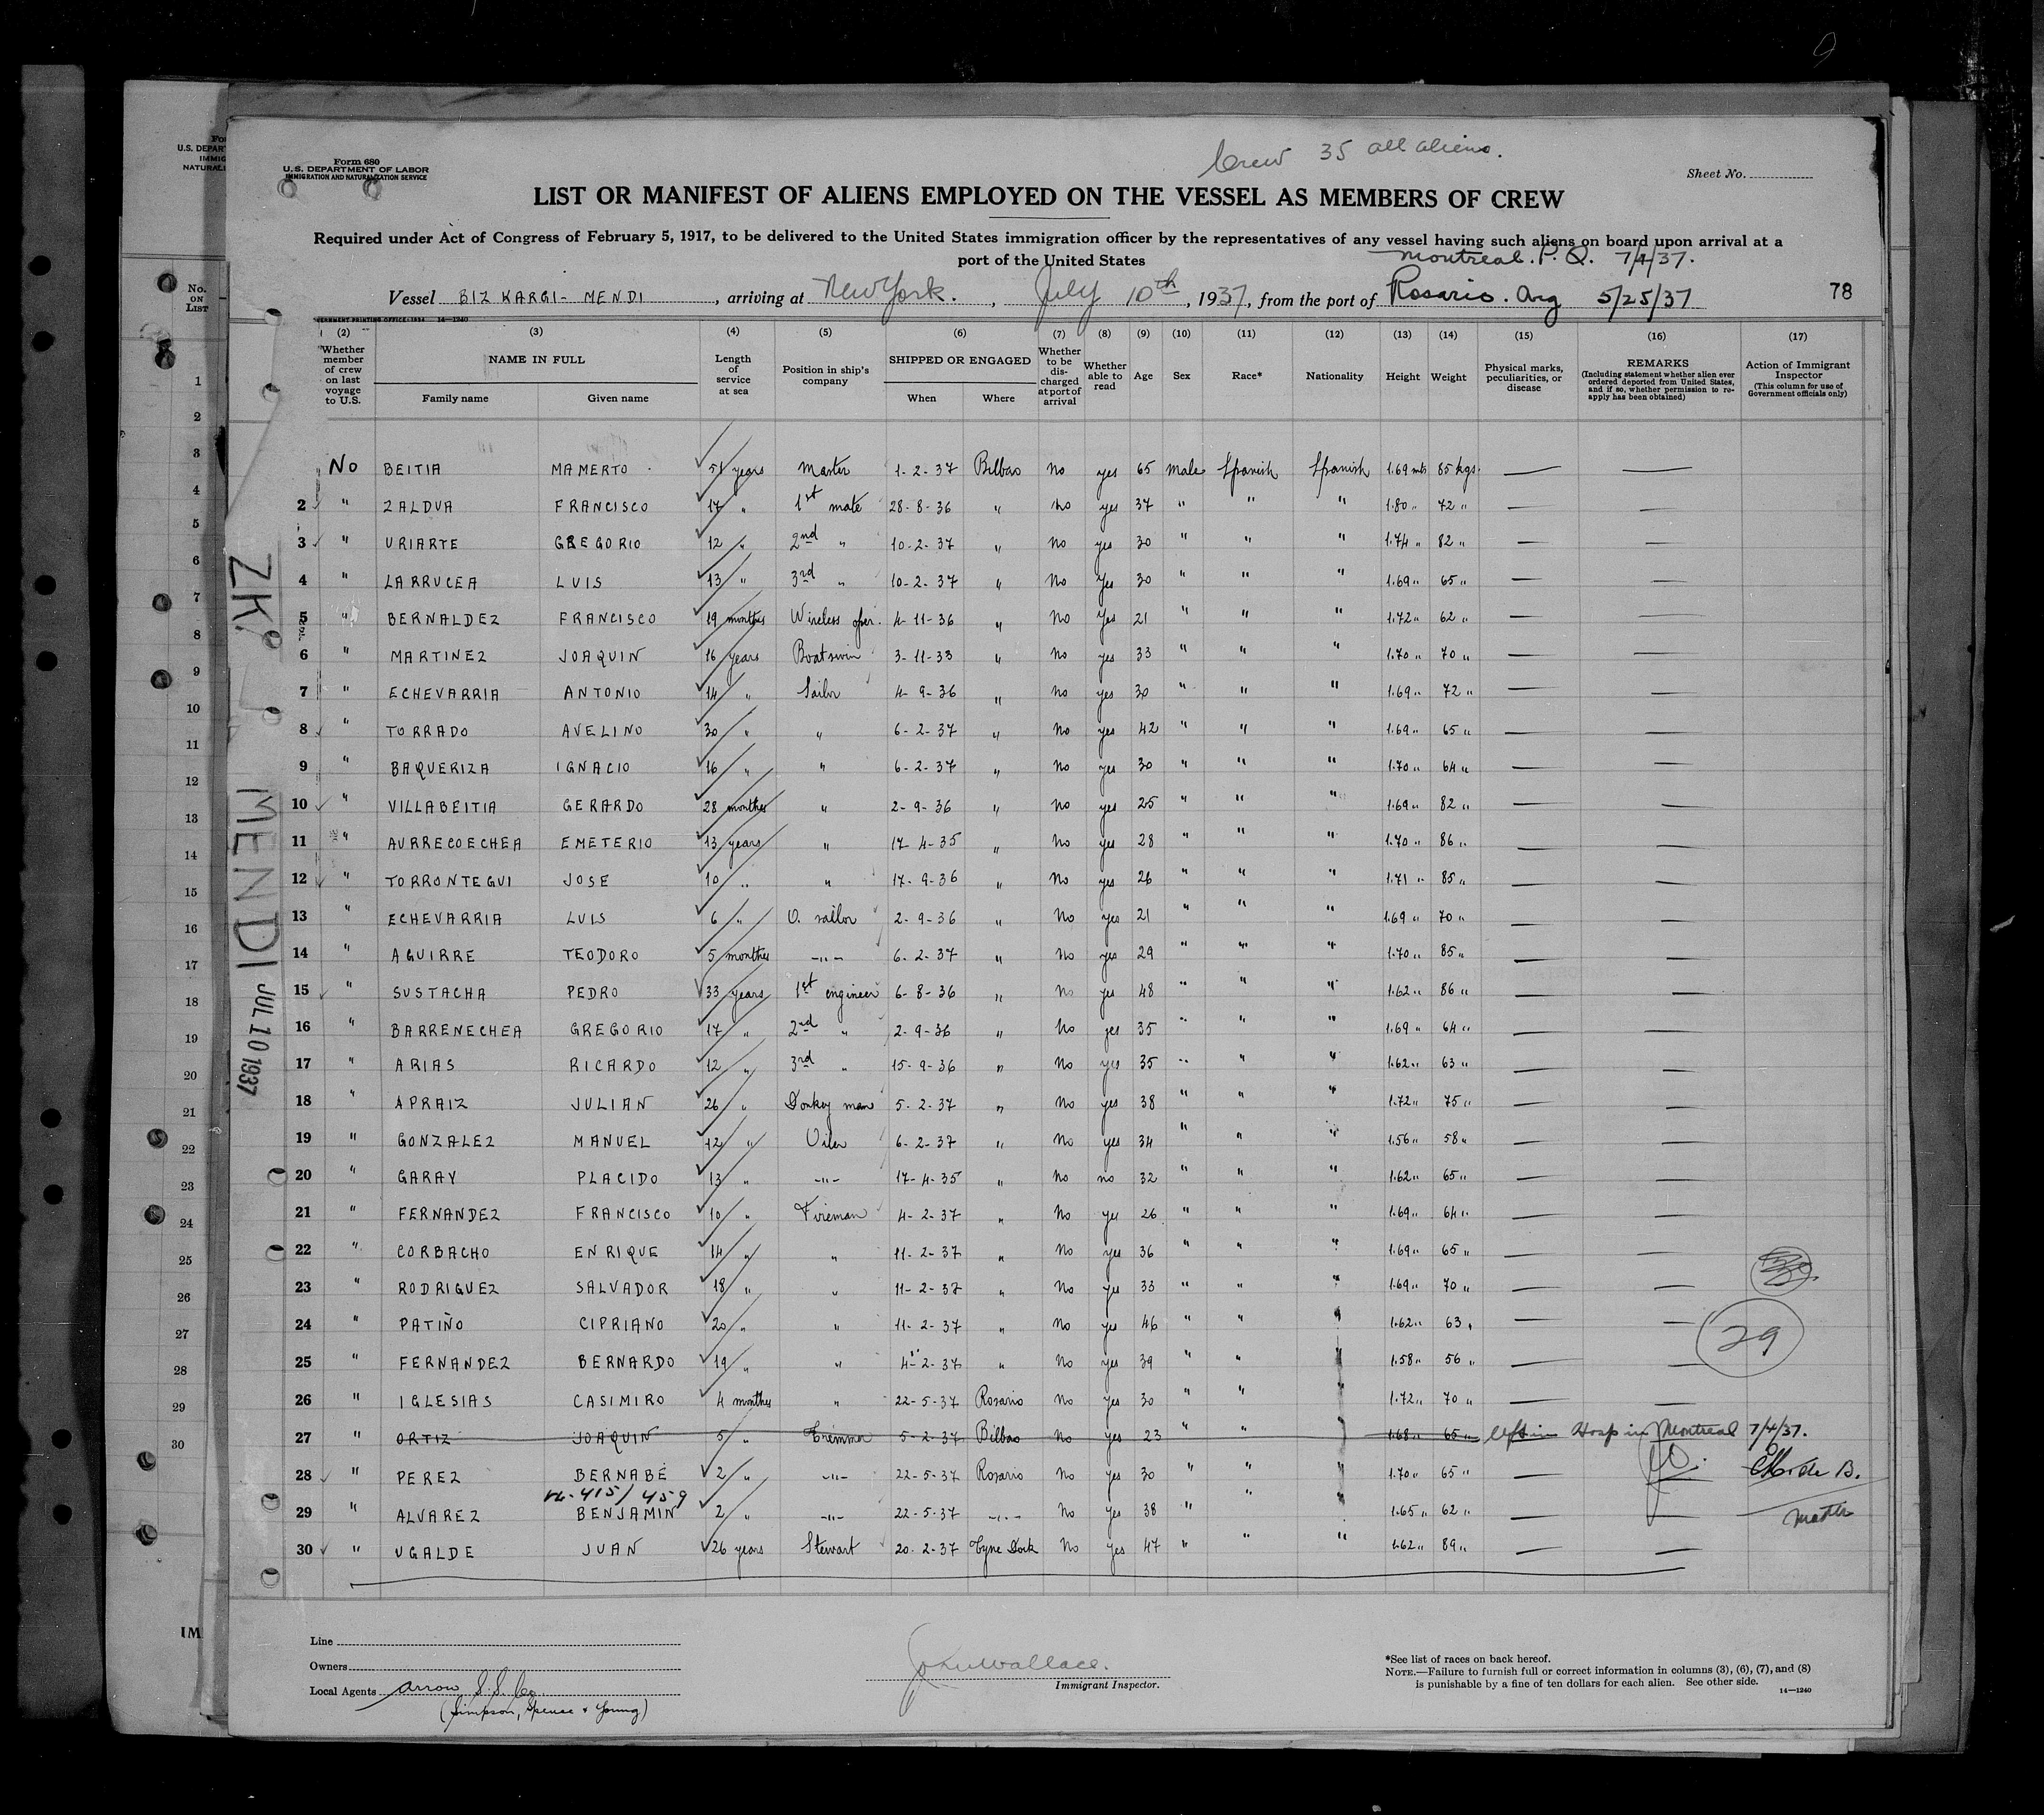 Crew 35 all aliens.
Form 680
U.S. DEPARTMENT OF LABOR
IMMIGRATION AND NATURALIZATION SERVICE
Sheet No.
LIST OR MANIFEST OF ALIENS EMPLOYED ON THE VESSEL AS MEMBERS OF CREW
Required under Act of Congress of February 5, 1917, to be delivered to the United States immigration officer by the representatives of any vessel having such aliens on board upon arrival at a
port of the United States
Montreal. P. Q. 7/4/37.
Vessel BIZKARGI-MENDI, arriving at New York., July 10th, 1937, from the port of Rosario. Arg 5/25/37
78
(2) (3) (4) (5) (6) (7) (8) (9) (10) (11) (12) (13) (14) (15) (16) (17)
Whether member of crew on last voyage to U.S. NAME IN FULL Family name Given name Length of service at sea Position in ship's company SHIPPED OR ENGAGED When Where Whether to be discharged at port of arrival Whether able to read Age Sex Race* Nationality Height Weight Physical marks, peculiarities, or disease REMARKS (Including statement whether alien ever ordered deported from United States, and if so, whether permission to re-apply has been obtained) Action of Immigrant Inspector (This column for use of Government officials only)
No BEITIA MAMERTO 51 years Master 1-2-37 Bilbao No yes 65 Male Spanish Spanish 1.69 mts 85 kgs.
2 " ZALDUA FRANCISCO 17 " 1st mate 28-8-36 " No yes 37 " " " 1.80 " 72 "
3 " URIARTE GREGORIO 12 " 2nd " 10-2-37 " No yes 30 " " " 1.74 " 82 "
4 " LARRUCEA LUIS 13 " 3rd " 10-2-37 " No Yes 30 " " " 1.69 " 65 "
5 " BERNALDEZ FRANCISCO 19 months Wireless oper. 4-11-36 " No Yes 21 " " " 1.72 " 62 "
6 " MARTINEZ JOAQUIN 16 years Boatswin 3-11-33 " No yes 33 " " " 1.70 " 70 "
7 " ECHEVARRIA ANTONIO 14 " Sailor 4-9-36 " No yes 30 " " " 1.69 " 72 "
8 " TORRADO AVELINO 30 " " 6-2-37 " No yes 42 " " " 1.69 " 65 "
9 " BAQUERIZA IGNACIO 16 " " 6-2-37 " No yes 30 " " " 1.70 " 64 "
10 " VILLABEITIA GERARDO 28 months " 2-9-36 " No yes 25 " " " 1.69 " 82 "
11 " AURRECOECHEA EMETERIO 13 years " 17-4-35 " No yes 28 " " " 1.70 " 86 "
12 " TORRONTEGUI JOSE 10 " " 17-9-36 " No yes 26 " " " 1.71 " 85 "
13 " ECHEVARRIA LUIS 6 " O. sailor 2-9-36 " No yes 21 " " " 1.69 " 70 "
14 " AGUIRRE TEODORO 5 months -"- 6-2-37 " No yes 29 " " " 1.70 " 85 "
15 " SUSTACHA PEDRO 33 years 1st engineer 6-8-36 " No yes 48 " " " 1.62 " 86 "
16 " BARRENECHEA GREGORIO 17 " 2nd " 2-9-36 " No yes 35 " " " 1.69 " 64 "
17 " ARIAS RICARDO 12 " 3rd " 15-9-36 " No yes 35 " " " 1.62 " 63 "
18 " APRAIZ JULIAN 26 " Donkey man 5-2-37 " No yes 38 " " " 1.72 " 75 "
19 " GONZALEZ MANUEL 12 " Oiler 6-2-37 " No yes 34 " " " 1.56 " 58 "
20 " GARAY PLACIDO 13 " -"- 17-4-35 " No no 32 " " " 1.62 " 65 "
21 " FERNANDEZ FRANCISCO 10 " Fireman 4-2-37 " No yes 26 " " " 1.69 " 64 "
22 " CORBACHO ENRIQUE 14 " " 11-2-37 " No yes 36 " " " 1.69 " 65 "
23 " RODRIGUEZ SALVADOR 18 " " 11-2-37 " No yes 33 " " " 1.69 " 70 "
24 " PATIÑO CIPRIANO 20 " " 11-2-37 " No yes 46 " " " 1.62 " 63 "
29
25 " FERNANDEZ BERNARDO 19 " " 4-2-37 " No yes 39 " " " 1.58 " 56 "
26 " IGLESIAS CASIMIRO 4 months " 22-5-37 Rosario No yes 30 " " " 1.72 " 70 "
27 " ORTIZ JOAQUIN 5 " Trimmer 5-2-37 Bilbao No yes 23 " " " 1.68 " 65 " left in Hosp in Montreal 7/4/37.
28 " PEREZ BERNABE 2 " -"- 22-5-37 Rosario No yes 30 " " " 1.70 " 65 "
415/459
29 " ALVAREZ BENJAMIN 2 " -"- 22-5-37 -"- No yes 38 " " " 1.65 " 62 "
Master
30 " UGALDE JUAN 26 years Stewart 20-2-37 Tyne Dock No yes 47 " " " 1.62 " 89 "
ZK
MENDI
JUL 10 1937
Line
Owners
Local Agents Arrow S.S. Co.
(Simpson, Spence & Young)
John Wallace.
Immigrant Inspector.
*See list of races on back hereof.
NOTE.—Failure to furnish full or correct information in columns (3), (6), (7), and (8)
is punishable by a fine of ten dollars for each alien. See other side.
14—1240